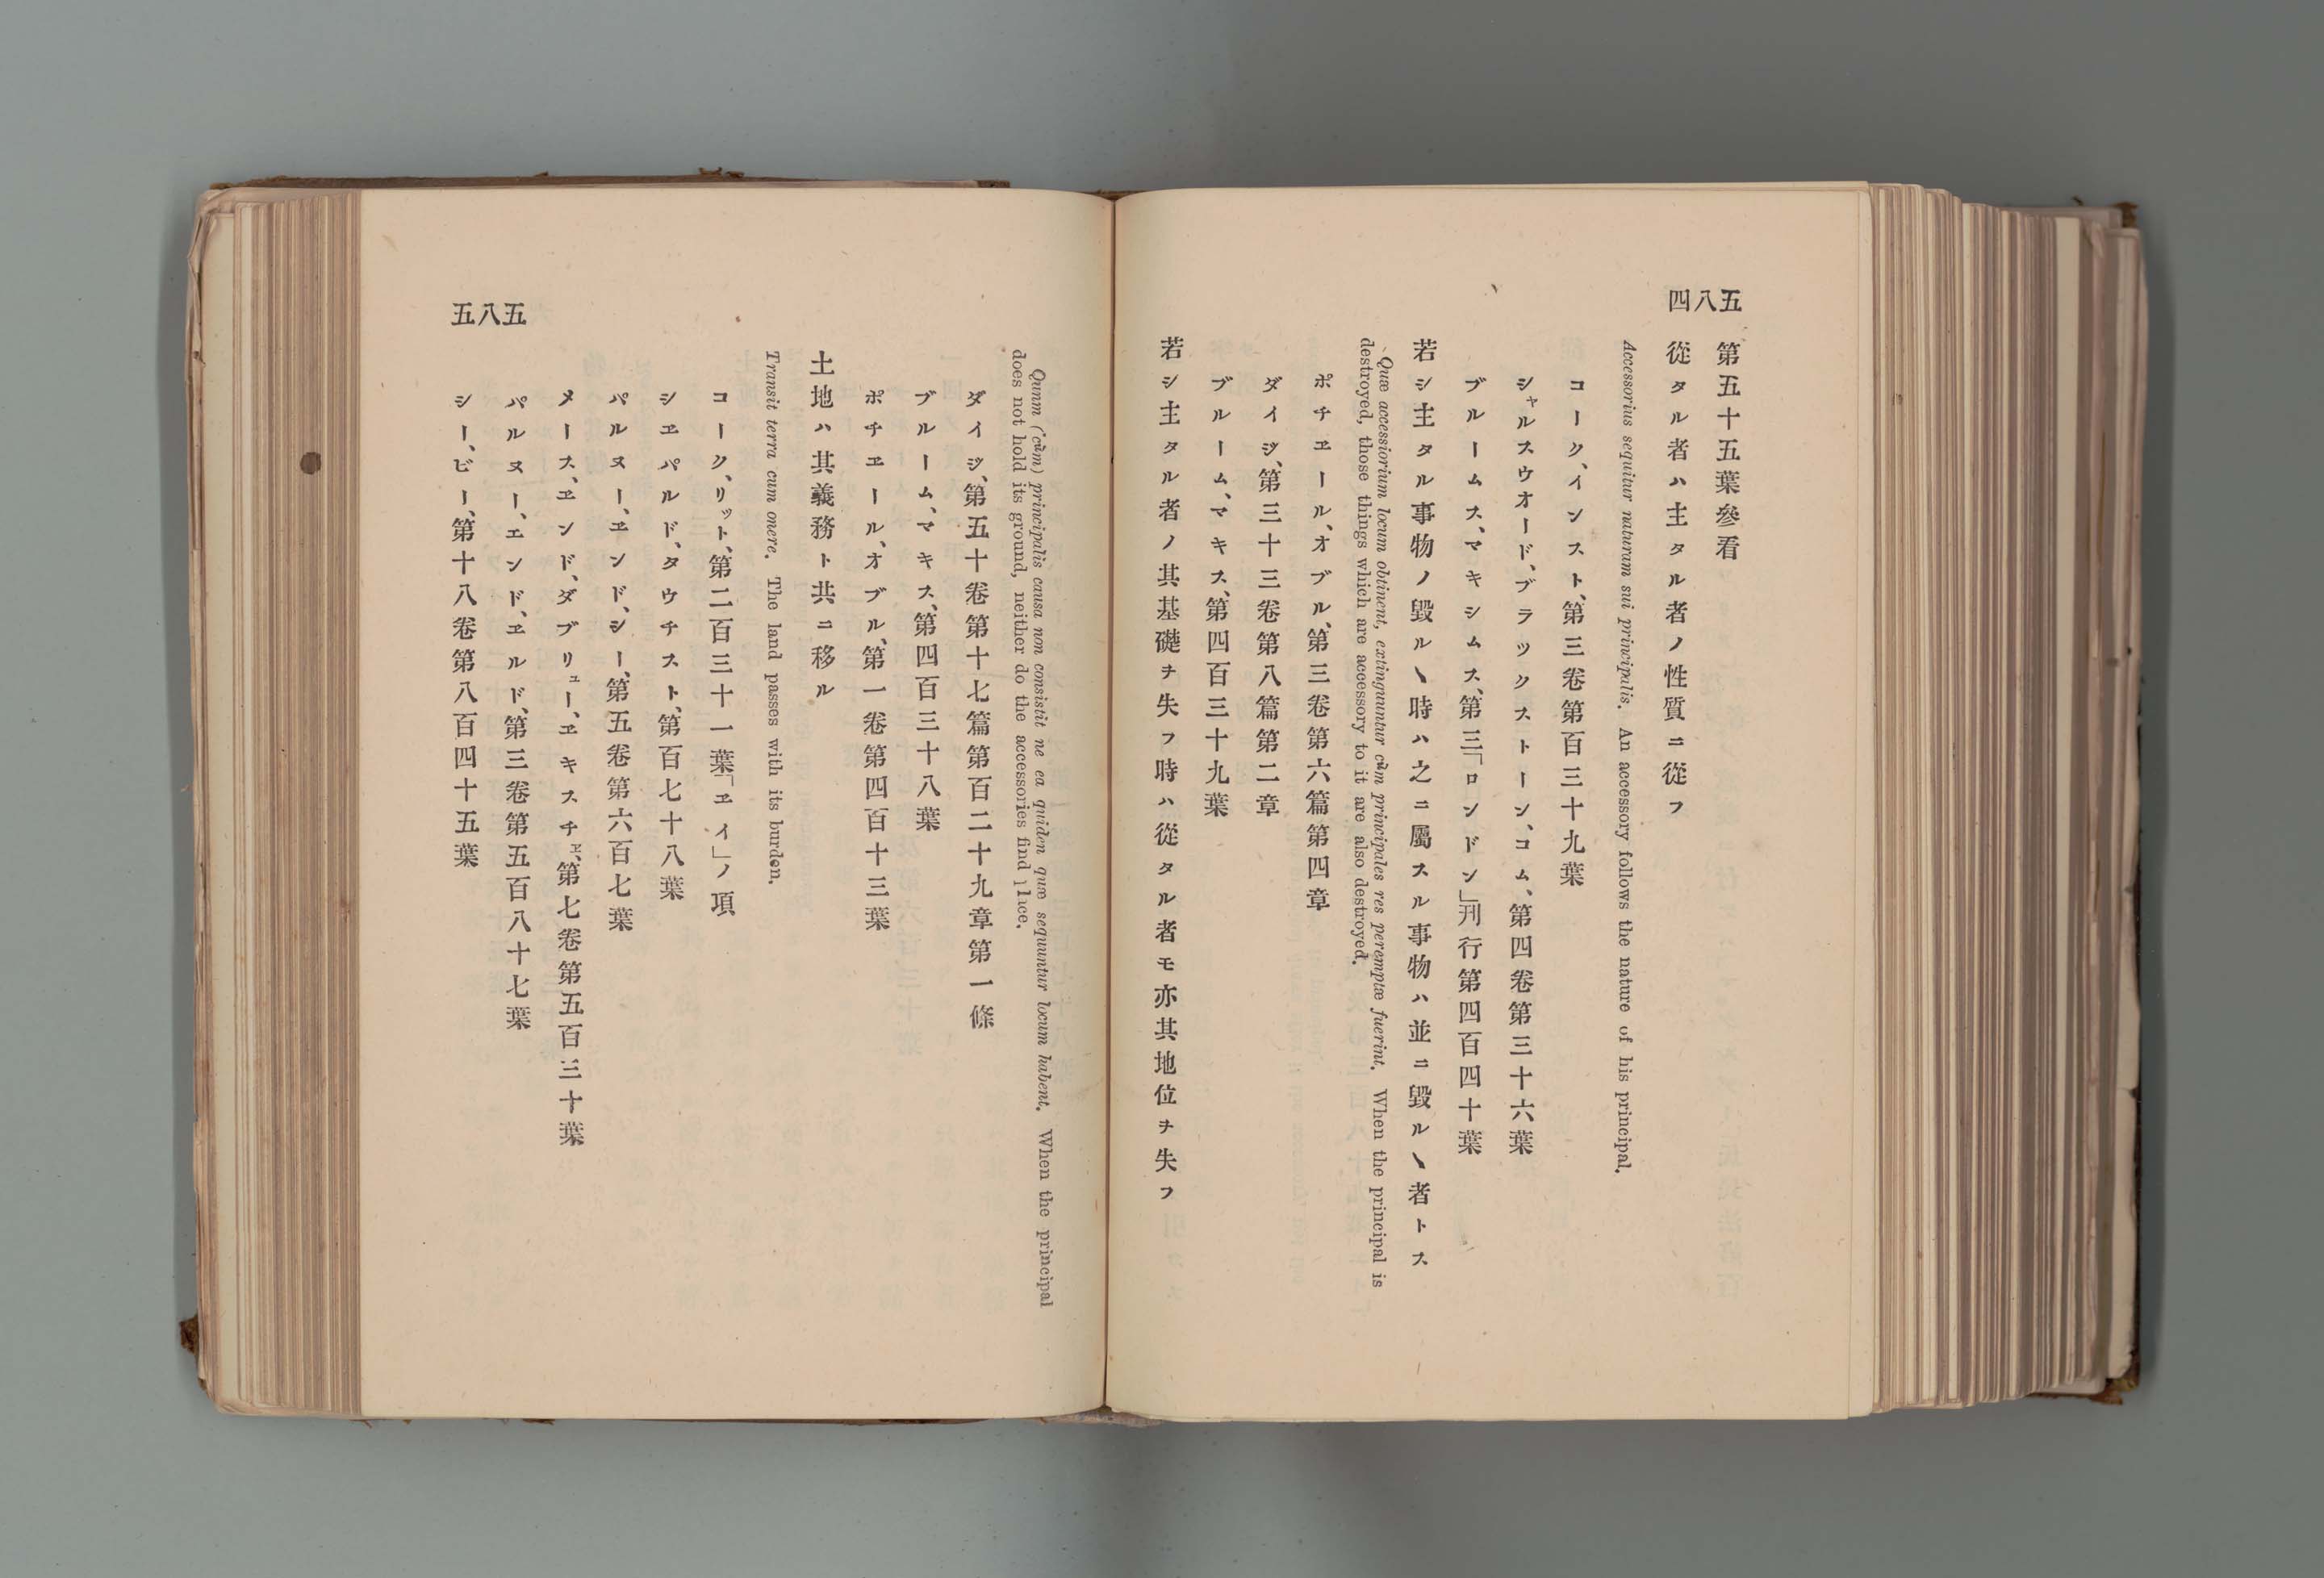 五八四
第五十五葉參看
從タル者ハ主タル者ノ性質ニ從フ
Accessorius sequitur naturam sui principalis. An accessory follows the nature of his principal.
コーク、インスト、第三卷第百三十九葉
シャルスウオード、ブラックストーン、コム、第四卷第三十六葉
ブルームス、マキシムス、第三「ロンドン」刋行第四百四十葉
若シ主タル事物ノ毀ルヽ時ハ之ニ屬スル事物ハ並ニ毀ルヽ者トス
Quæ accessiorium locum obtinent, extinguuntur cǔm principales res peremptæ fuerint. When the principal is
destroyed, those things which are accessory to it are also destroyed.
ポチエール、オブル、第三卷第六篇第四章
ダイジ、第三十三卷第八篇第二章
ブルーム、マキス、第四百三十九葉
若シ主タル者ノ其基礎ヲ失フ時ハ從タル者モ亦其地位ヲ失フ
五八五
Qunm (cǔm) principalis causa non consistit ne ea quiden quæ sequuntur locum habent. When the principal
does not hold its ground, neither do the accessories find place.
ダイジ、第五十卷第十七篇第百二十九章第一條
ブルーム、マキス、第四百三十八葉
ポチエール、オブル、第一卷第四百十三葉
土地ハ其義務ト共ニ移ル
Transit terra cum onere. The land passes with its burden.
コーク、リット、第二百三十一葉「エイ」ノ項
シエパルド、タウチスト、第百七十八葉
パルヌー、エンド、シー、第五卷第六百七葉
メース、エンド、ダブリュー、エキスチエ、第七卷第五百三十葉
パルヌー、エンド、エルド、第三卷第五百八十七葉
シー、ビー、第十八卷第八百四十五葉